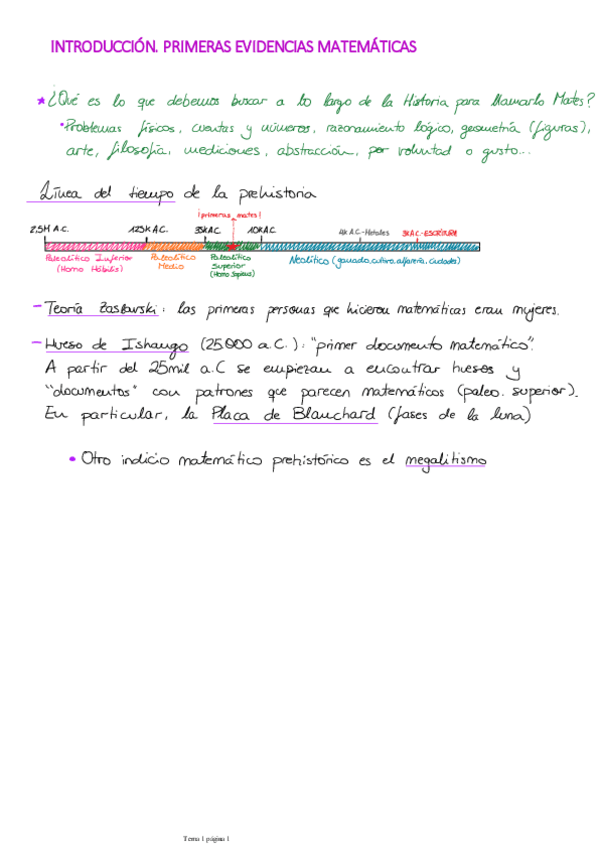 INTRODUCCIÓN. PRIMERAS EVIDENCIAS MATEMÁTICAS
* ¿Qué es lo que debemos buscar a lo largo de la Historia para llamarlo Mates?
• Problemas físicos, cuentas y números, razonamiento lógico, geometría (figuras),
arte, filosofía, mediciones, abstracción, por voluntad o gusto...
Línea del tiempo de la prehistoria
¡primeras mates!
2,5M A.C. 125k A.C. 35k A.C. 10k A.C. 4k A.C.-Metales 3k A.C.-ESCRITURA
Paleolítico Inferior
(Homo Hábilis)
Paleolítico
Medio
Paleolítico
Superior
(Homo Sapiens)
Neolítico (ganado, cultivo, alfarería, ciudades)
- Teoría Zaslawski: las primeras personas que hicieron matemáticas eran mujeres.
- Hueso de Ishango (25.000 a.C.): "primer documento matemático".
A partir del 25mil a.C se empiezan a encontrar huesos y
"documentos" con patrones que parecen matemáticos (paleo. superior).
En particular, la Placa de Blanchard (fases de la luna)
• Otro indicio matemático prehistórico es el megalitismo
Tema 1 página 1